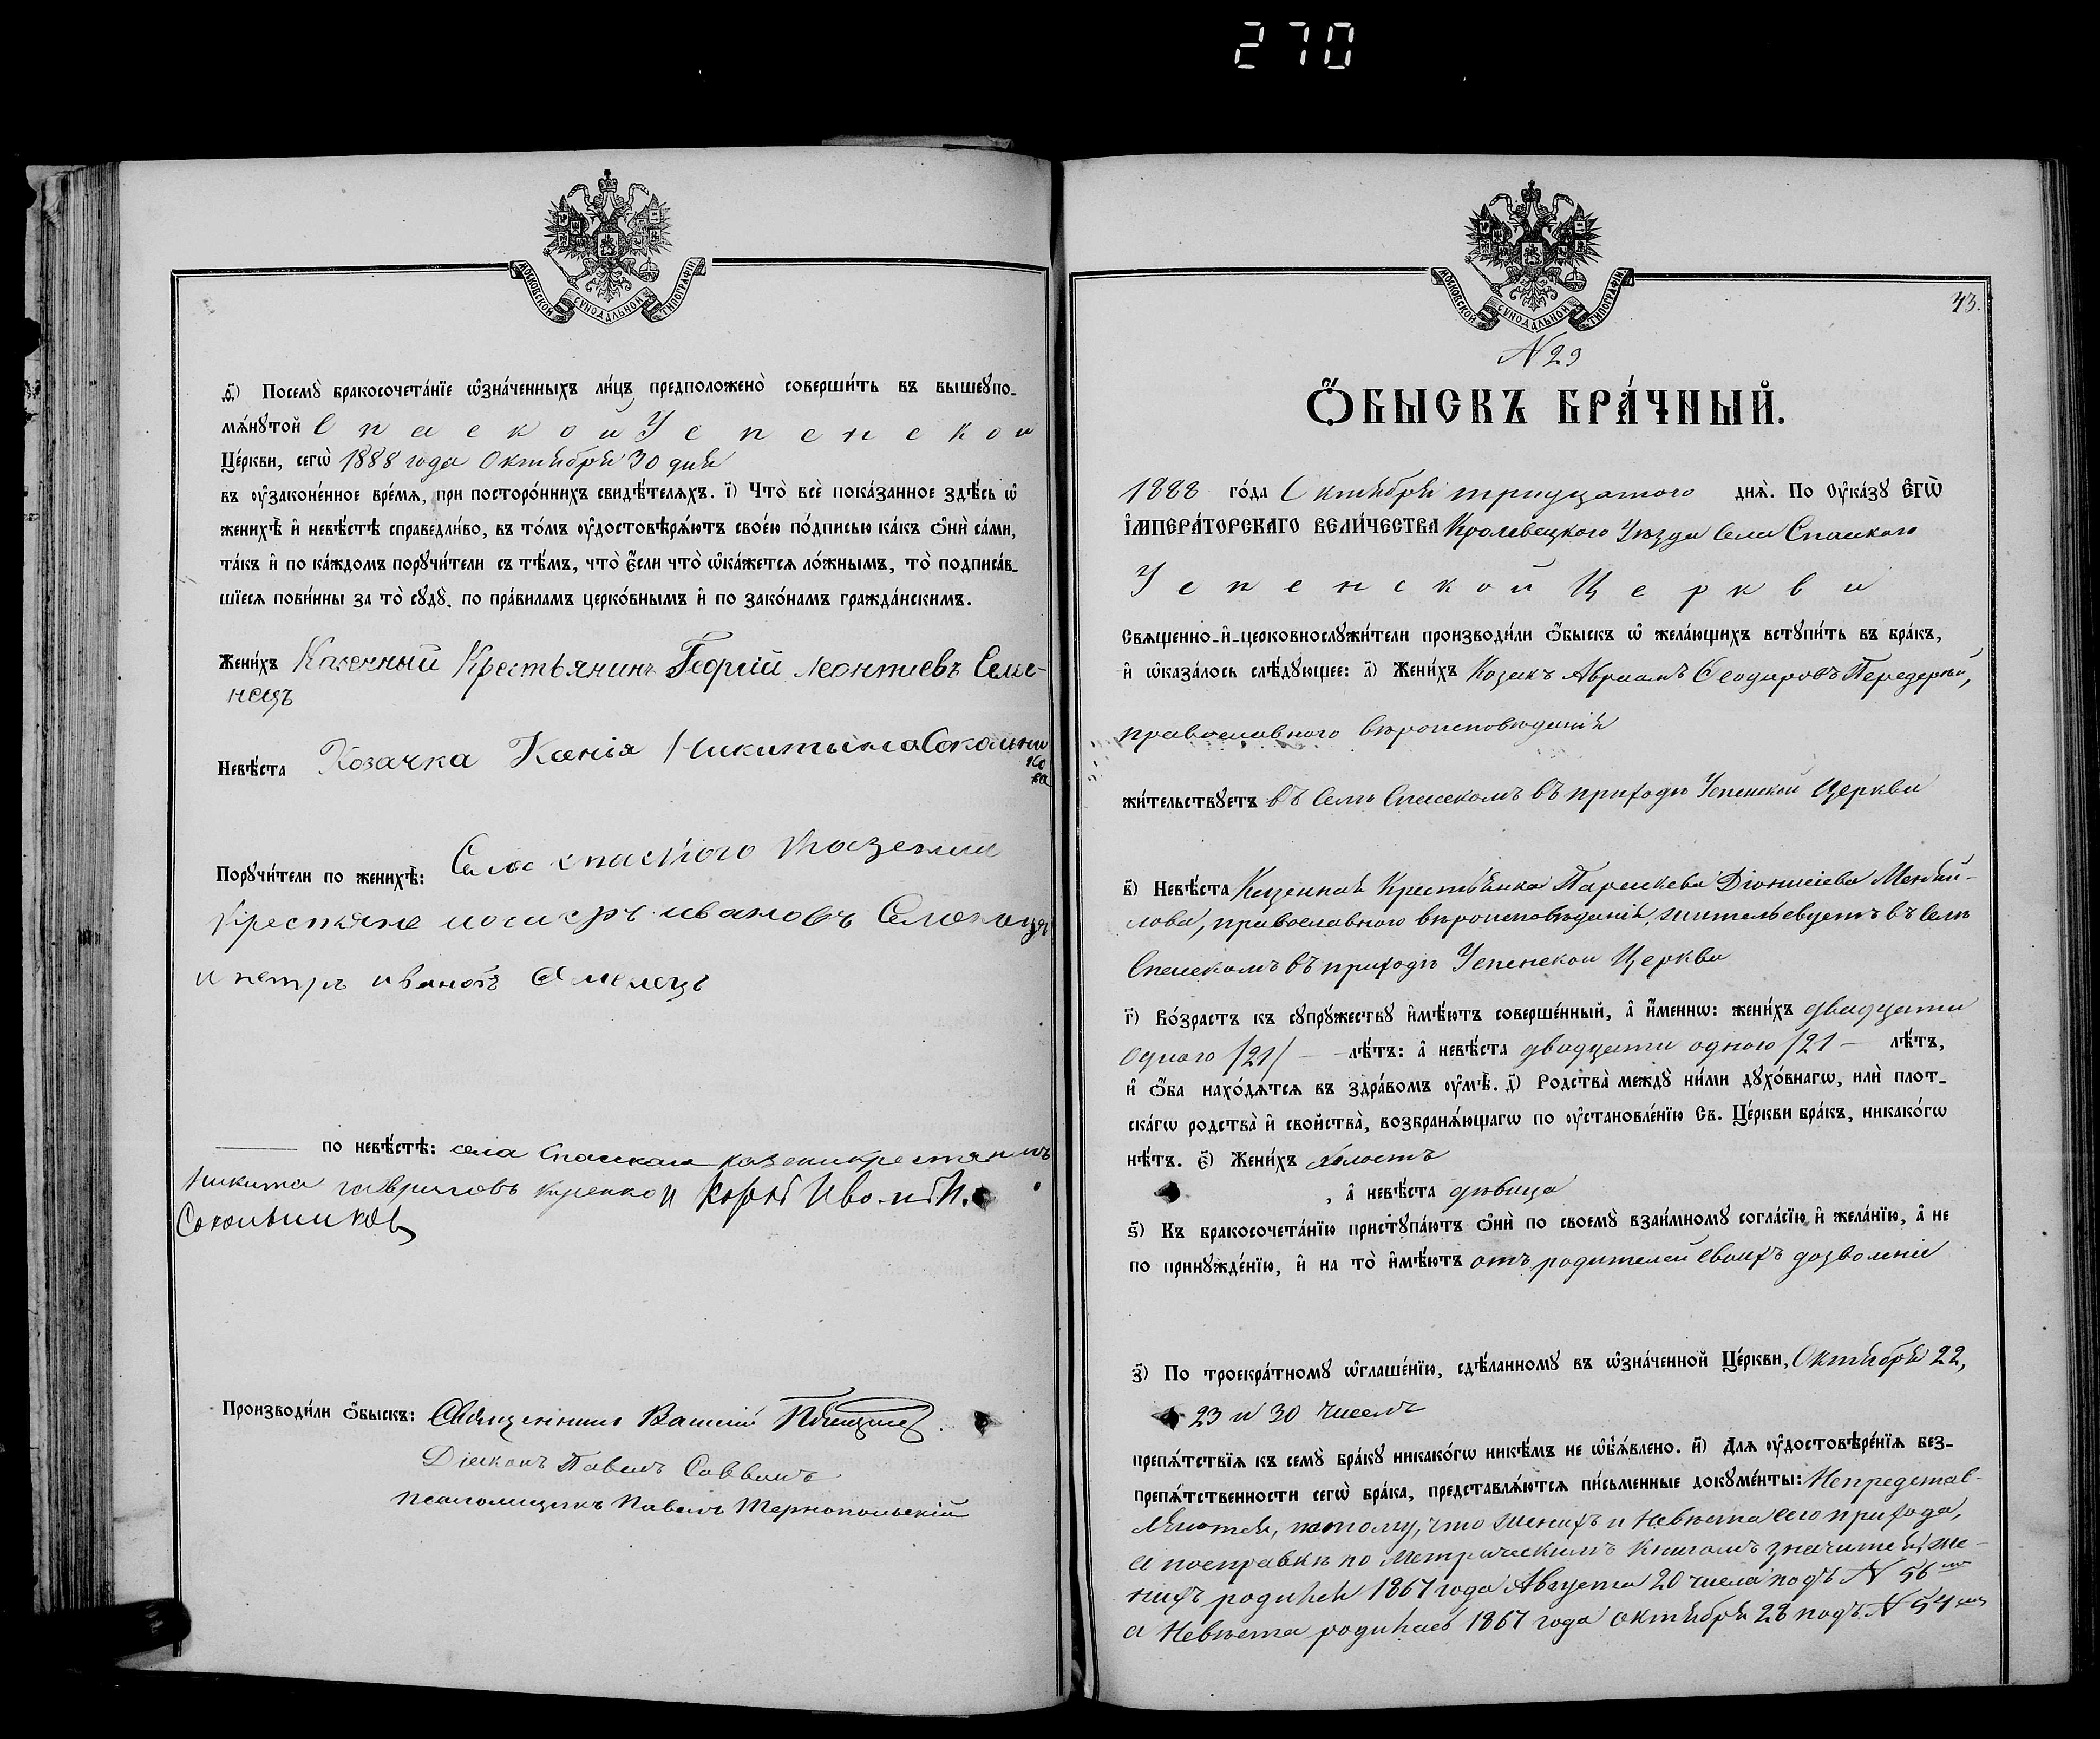 270
МОСКОВСКОЙ СѴНОДАЛЬНОЙ ТИПОГРАФІИ
ѳ҃) Посемꙋ бракосочета́нїе ѡ҆зна́ченныхъ ли́цъ предположено̀ соверши́ть въ вышеꙋпо-
мѧ́нꙋтой Спаской Успенской
Це́ркви, сегѡ̀ 1888 года Октября 30 дня
въ ᲂу҆законе́нное вре́мѧ, при посторо́ннихъ свидѣ́телѧхъ. і҃) Что̀ всѐ пока́занное здѣ́сь ѡ҆
женихѣ̀ и҆ невѣ́стѣ справедли́во, въ то́мъ ᲂу҆достовѣрѧ́ютъ свое́ю по́дписью ка́къ ѻ҆нѝ са́ми,
та́къ и҆ по ка́ждомъ порꙋчи́тели съ тѣ́мъ, что̀ є҆́сли что̀ ѡ҆ка́жетсѧ ло́жнымъ, то̀ подписа́в-
шїесѧ пови́нны за то̀ сꙋдꙋ̀, по пра́виламъ церко́внымъ и҆ по зако́намъ гражда́нскимъ.
Жени́хъ Казенный Крестьянинъ Георгій Леонтиевъ Семе-
нецъ
Невѣ́ста Козачка Ксенія Никитына Сокольни
ко
ва
Порꙋчи́тели по женихѣ̀: Села спаского Казении
Крестяне иосифъ ивановъ Семенецъ
и петръ ивановъ Семенецъ
по невѣ́стѣ: села Спаскаго казени крестянинъ
Никита гавриловъ куренко и
Сокольников
Производи́ли ѻ҆́быскъ: Священникъ Василій
Діаконъ Павелъ Саввичъ
псаломщикъ Павелъ Тернопольскій
МОСКОВСКОЙ СѴНОДАЛЬНОЙ ТИПОГРАФІИ
43.
N 29
Ѻ҆́БЫСКЪ БРА́ЧНЫЙ.
1888 го́да Октября тридцатого днѧ̀. По ᲂу҆ка́зꙋ є҆гѡ̀
і҆мпера́торскагѡ вели́чества Кролевецкого Уезда Села Спаского
Успенской Церкви
Свѧщенно-и҆-церковнослꙋжи́тели производи́ли ѻ҆́быскъ ѡ҆ жела́ющихъ встꙋпи́ть въ бра́къ,
и҆ ѡ҆каза́лось слѣ́дꙋющее: а҃) Жени́хъ Козакъ Авраамъ Ѳеодоровъ Передерій,
православного вѣроисповѣданія
жи́тельствꙋетъ въ Селѣ Спаскомъ въ приходѣ Успенской Церкви
в҃) Невѣ́ста Казенная Крестьянка Параскева Діонисіева Менжи-
лова, православного вѣроисповѣданія, жительсвуетъ въ Селѣ
Спаскомъ въ приходѣ Успенской Церкви
г҃) Во́зрастъ къ сꙋпрꙋ́жествꙋ и҆мѣ́ютъ соверше́нный, а҆ и҆́меннѡ: жени́хъ двадцати
одного /21/ — лѣ́тъ: а҆ невѣ́ста двадцати одного /21 — лѣ́тъ,
и҆ ѻ҆́ба нахо́дѧтсѧ въ здра́вомъ ᲂу҆мѣ̀. д҃) Родства̀ междꙋ̀ ни́ми дꙋхо́внагѡ, илѝ плот-
ска́гѡ родства̀ и҆ свойства̀, возбранѧ́ющагѡ по ᲂу҆становле́нїю Св. Це́ркви бра́къ, никако́гѡ
нѣ́тъ. є҃) Жени́хъ холостъ
, а҆ невѣ́ста дѣвица
ѕ҃) Къ бракосочета́нїю пристꙋпа́ютъ ѻ҆нѝ по своемꙋ̀ взаи́мномꙋ согла́сїю и҆ жела́нїю, а҆ не
по принꙋжде́нїю, и҆ на то̀ и҆мѣ́ютъ отъ родителей своихъ дозволеніе
з҃) По троекра́тномꙋ ѡ҆глаше́нїю, сдѣ́ланномꙋ въ ѡ҆зна́ченной Це́ркви, Октября 22,
23 и 30 чиселъ
препѧ́тствїѧ къ семꙋ̀ бра́кꙋ никако́гѡ никѣ́мъ не ѡ҆б̾ѧ́влено. и҃) Длѧ ᲂу҆достовѣре́нїѧ без-
препѧ́тственности сегѡ̀ бра́ка, представлѧ́ютсѧ пи́сьменные докꙋме́нты: Непредстав-
ляются, потому, что женихъ и Невѣста сего прихода,
а посправкѣ по Метрическимъ книгамъ значится же-
нихъ родился 1867 года Августа 20 числа подъ N 56 мъ
а Невѣста родилась 1867 года октября 28 подъ N 54